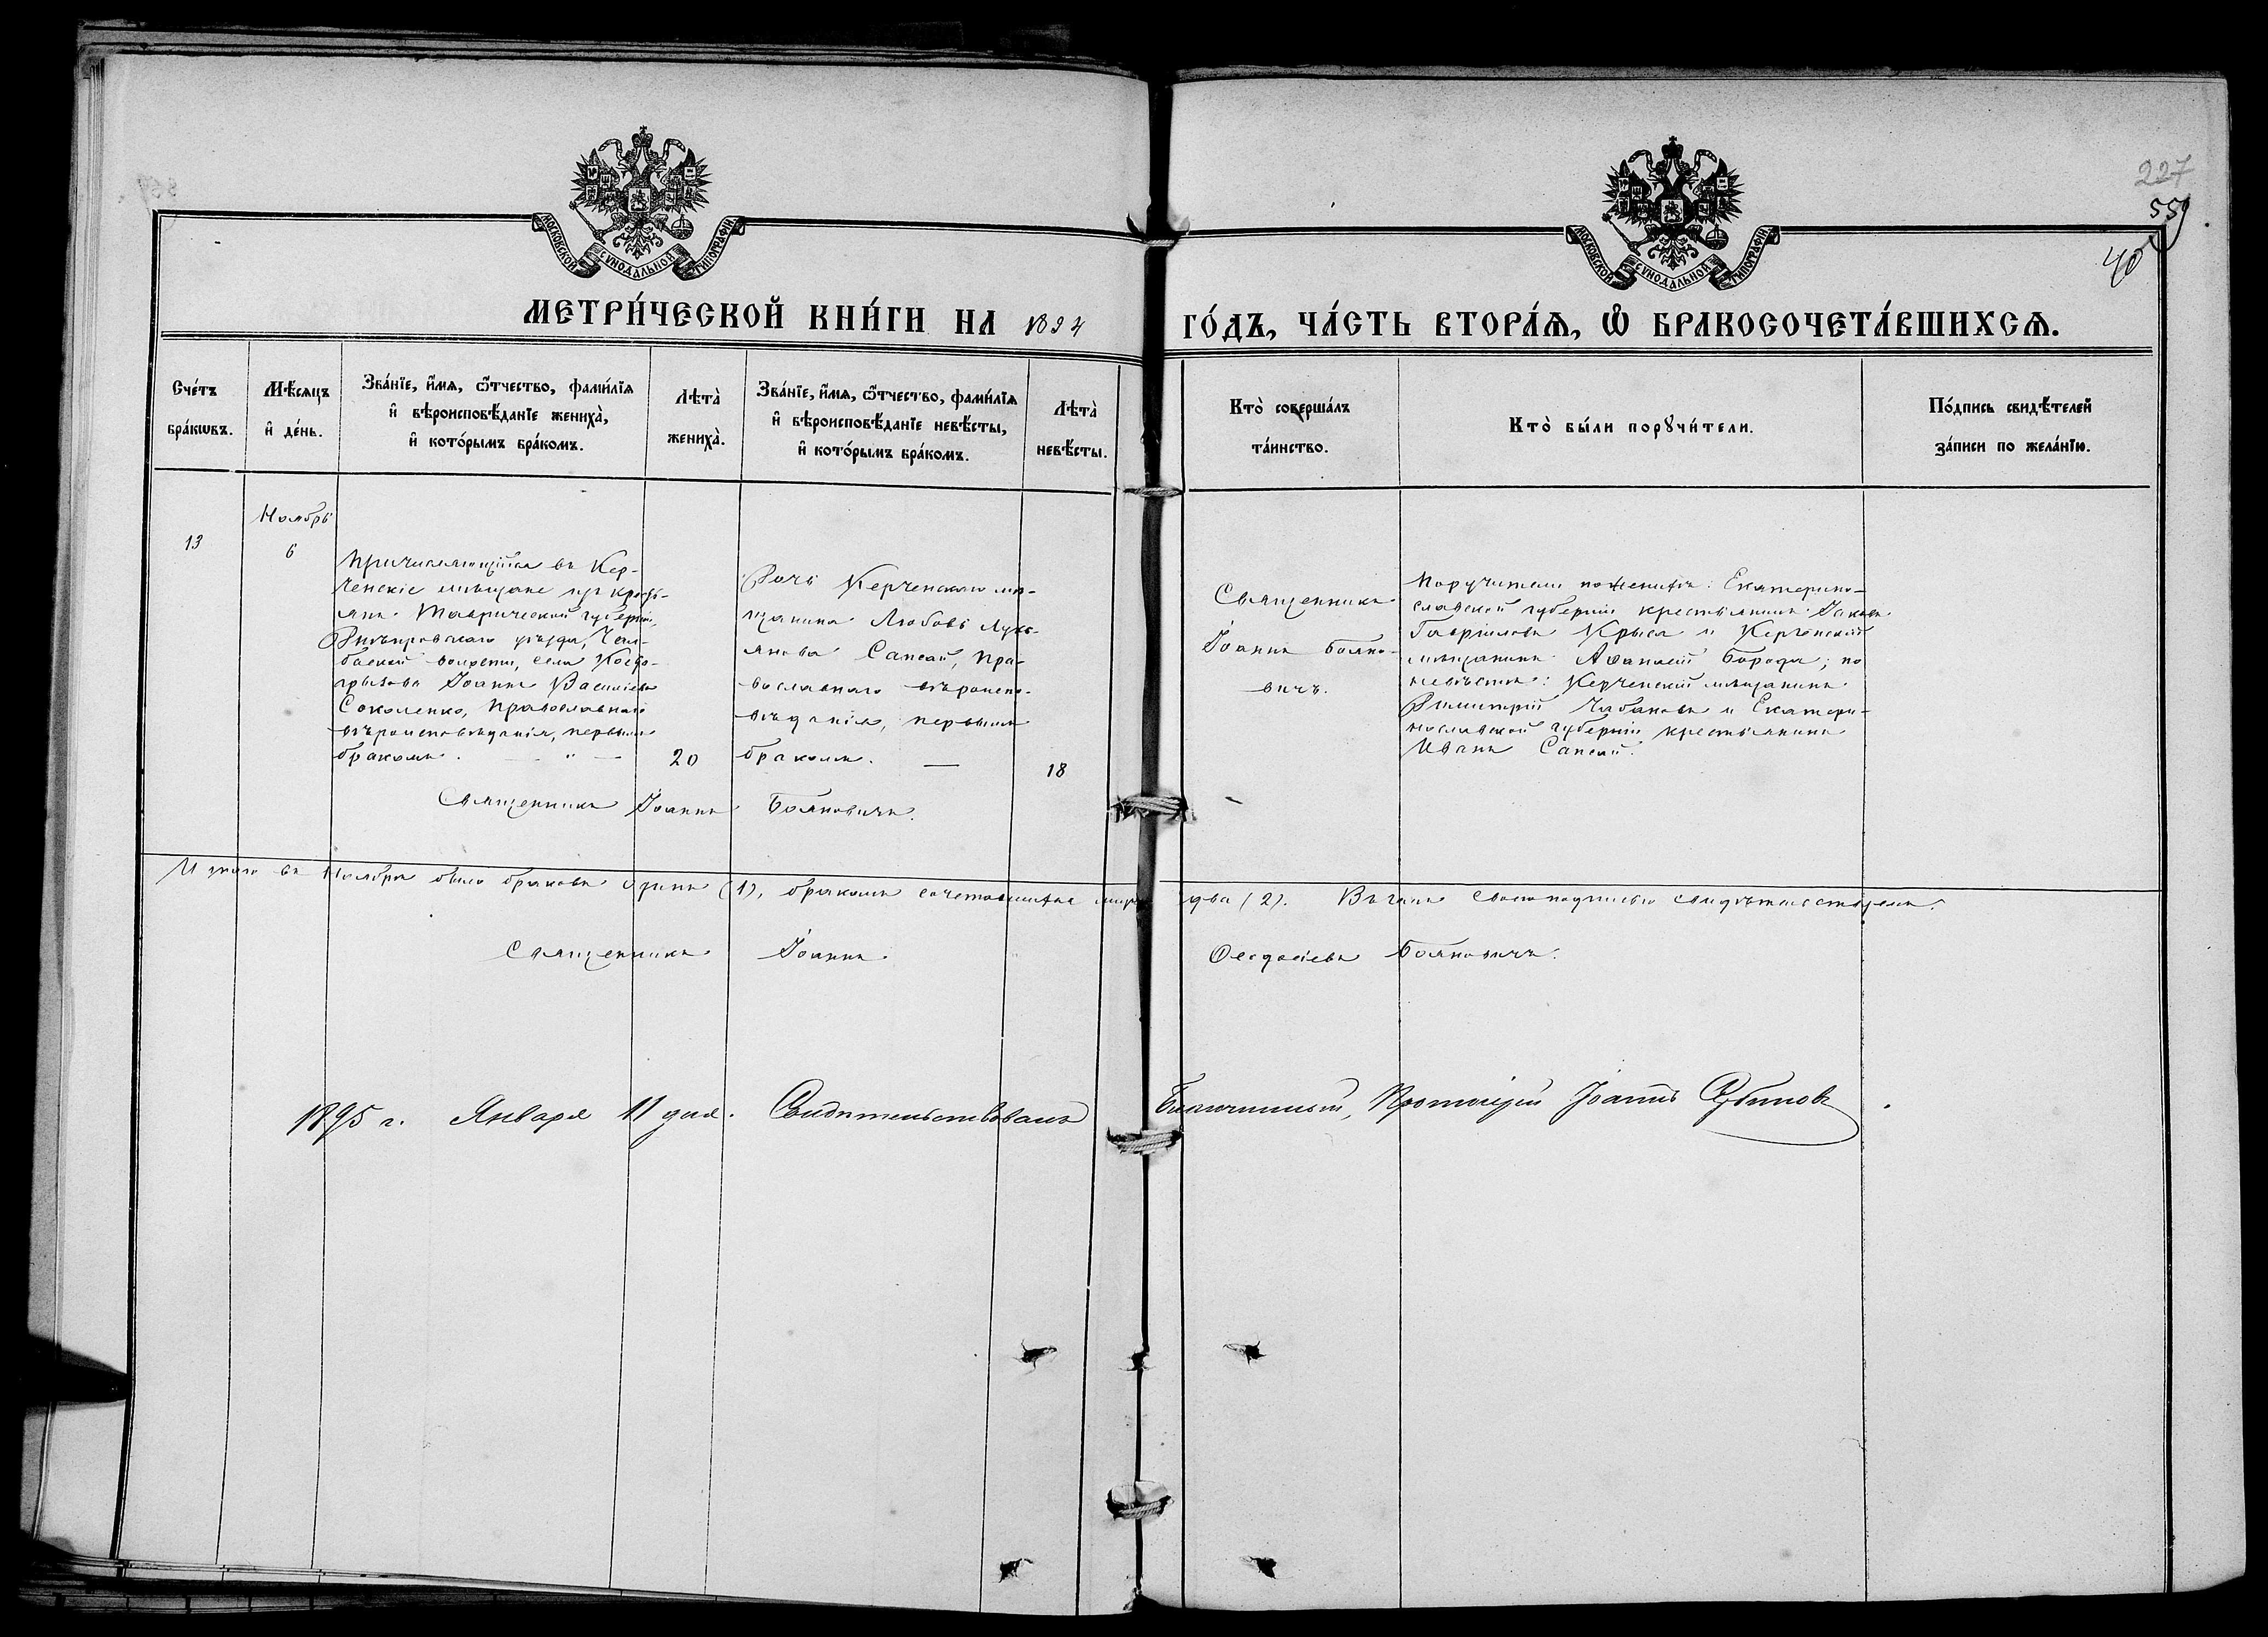 227
559
40
МОСКОВСКОЙ СѴНОДАЛЬНОЙ ТИПОГРАФІИ
МОСКОВСКОЙ СѴНОДАЛЬНОЙ ТИПОГРАФІИ
МЕТРИ́ЧЕСКОЙ КНИ́ГИ НА 1894 ГО́ДЪ, ЧА́СТЬ ВТОРА́Ѧ, Ѽ БРАКОСОЧЕТА́ВШИХСѦ.
Сче́тъ
бра́кѡвъ.
Мѣ́сѧцъ
и҆ де́нь.
Зва́нїе, и҆́мѧ, ѻ҆́тчество, фами́лїѧ
и҆ вѣроисповѣ́данїе жениха̀,
и҆ кото́рымъ бра́комъ.
Лѣта̀
жениха̀.
Зва́нїе, и҆́мѧ, ѻ҆́тчество, фами́лїѧ
и҆ вѣроисповѣ́данїе невѣ́сты,
и҆ кото́рымъ бра́комъ.
Лѣта̀
невѣ́сты.
Кто̀ соверша́лъ
та́инство.
Кто̀ бы́ли порꙋчи́тели.
По́дпись свидѣ́телей
за́писи по жела́нїю.
13
Ноябрь
6
Причисляющійся въ Кер-
ченскіе мѣщане изъ кресть-
янъ Таврической губерніи,
Днѣпровскаго уѣзда, Чал-
баской волости, села Косто-
грызова Іоаннъ Василіевъ
Соколенко, православнаго
вѣроисповѣданія, первымъ
бракомъ. — " —
20
Дочь Керченскаго мѣ-
щанина Любовь Лукь-
янова Сапсай, пра-
вославнаго вѣроиспо-
вѣданія, первымъ
бракомъ. —
18
Священникъ Іоаннъ Бояновичъ.
Священникъ
Іоаннъ Бояно-
вичъ.
Поручители по женихѣ: Екатерино-
славской губерніи крестьянинъ Іаковъ
Гавріиловъ Крыса и Керченскій
мѣщанинъ Аѳанасій Борода; по
невѣстѣ: Керченскій мѣщанинъ
Димитрій Чабановъ и Екатери-
нославской губерніи крестьянинъ
Иванъ Сапсай.
Итого въ Ноябрѣ было браковъ одинъ (1), бракомъ сочетавшихся лицъ два (2). Въ чемъ своеподписью свидѣтельствуемъ:
Священникъ Іоаннъ Ѳеодосіевъ Бояновичъ.
1895 г. Января 11 дня. Свидѣтельствовалъ Благочинный, Протоіерей Іоаннъ